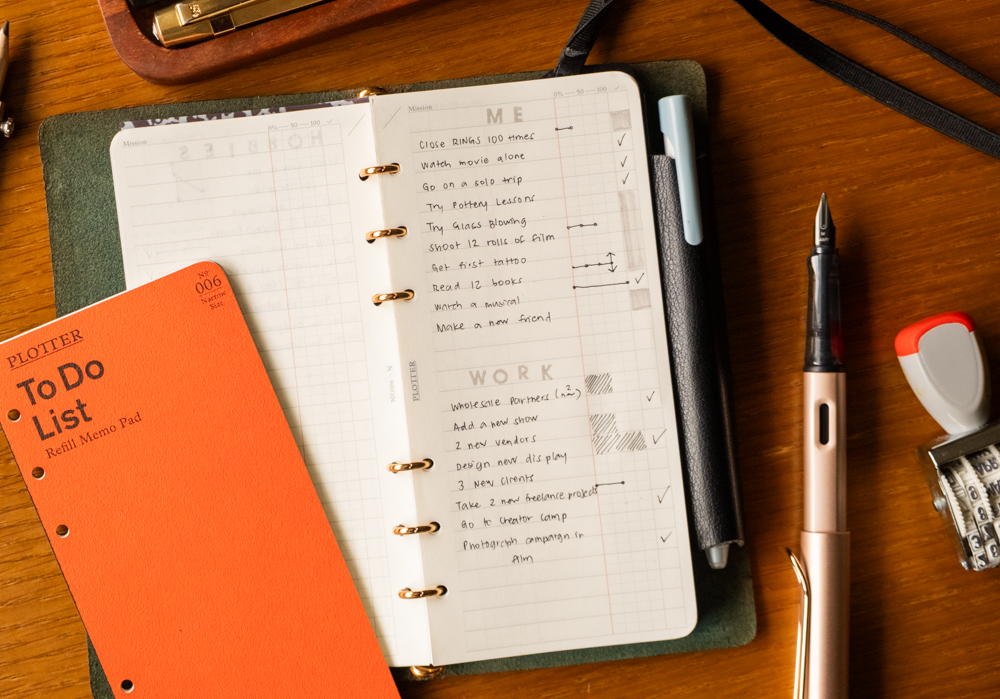 Mission
0% — 50 — 100 ✓
HOBBIES
Mission
0% — 50 — 100 ✓
ME
Close RINGS 100 times
Watch movie alone
Go on a solo trip
Try Pottery Lessons
Try Glass Blowing
Shoot 12 rolls of film
Get first tattoo
Read 12 books
Watch a musical
Make a new friend
PLOTTER
WORK
Wholesale Partners
Add a new show
2 new vendors
Design new display
3 New Clients
Take 2 new freelance projects
Go to Creator Camp
Photograph campaign in
film
PLOTTER
Nº
006
Narrow
Size
To Do
List
Refill Memo Pad